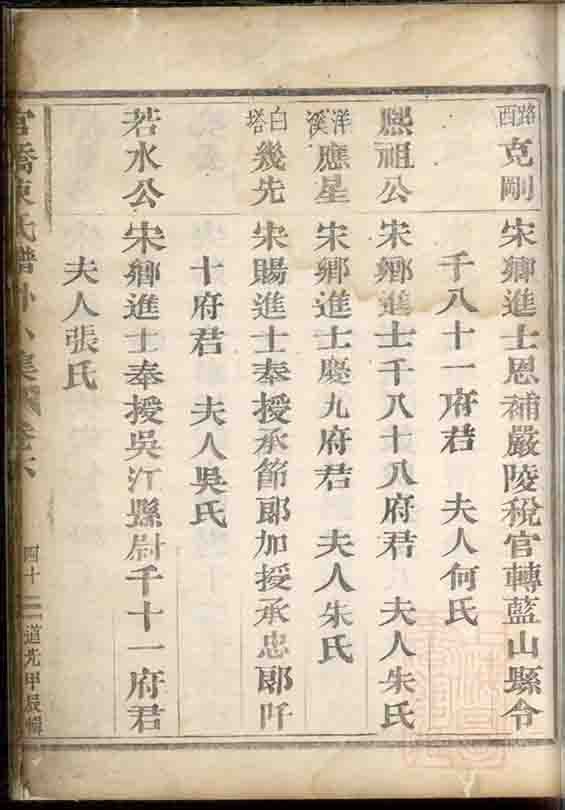 路西 克剛 宋鄉進士恩補嚴陵稅官轉藍山縣令
千八十一府君 夫人何氏
熙祖公 宋鄉進士千八十八府君 夫人朱氏
洋溪 應星 宋鄉進士慶九府君 夫人朱氏
白塔 幾先 宋賜進士奉授承節郎加授承忠郎阡
十府君 夫人吳氏
若水公 宋鄉進士奉授吳江縣尉千十一府君
夫人張氏
氏譜外
卷六
四十二 道光甲辰輯